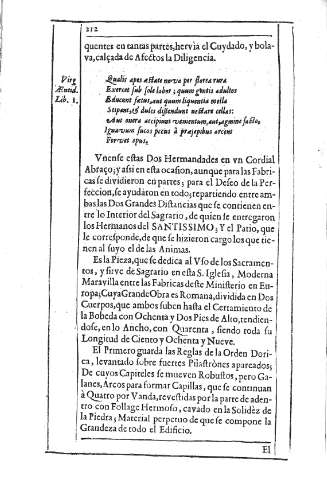 212
quentes en tantas partes, hervia el Cuydado, y bola-
va, calçada de Afectos la Diligencia.
Virg
Æneid.
Lib. 1.
Qualis apes æstate nova per florea rura
Exercet sub sole labor; quum gentis adultos
Educunt fœtus, aut quum liquentia mella
Stipant, & dulci distendunt nectare cellas:
Aut onera accipiunt venientum, aut, agmine facto,
Ignavum fucos pecus à præsepibus arcent
Fervet opus.
Vnense estas Dos Hermandades en vn Cordial
Abraço; y assi en esta ocasion, aunque para las Fabri-
cas se dividieron en partes; para el Deseo de la Per-
feccion, se ayudaron en todo; repartiendo entre am-
bas las Dos Grandes Distancias que se contienen en-
tre lo Interior del Sagrario, de quien se entregaron
los Hermanos del SANTISSIMO; Y el Patio, que
le corresponde, de que se hizieron cargo los que tie-
nen al suyo el de las Animas.
Es la Pieza, que se dedica al Vso de los Sacramen-
tos, y sirve de Sagrario en esta S. Iglesia, Moderna
Maravilla entre las Fabricas deste Ministerio en Eu-
ropa; Cuya Grande Obra es Romana, dividida en Dos
Cuerpos, que ambos suben hasta el Cerramiento de
la Bobeda con Ochenta y Dos Pies de Alto, tendien-
dose, en lo Ancho, con Quarenta, siendo toda su
Longitud de Ciento y Ochenta y Nueve.
El Primero guarda las Reglas de la Orden Dori-
ca, levantado sobre fuertes Pilastrònes apareados;
De cuyos Capiteles se mueven Robustos, pero Ga-
lanes, Arcos para formar Capillas, que se continuan
à Quatro por Vanda, revestidas por la parte de aden-
tro con Follage Hermoso, cavado en la Solidèz de
la Piedra; Material perpetuo de que se compone la
Grandeza de todo el Edificio.
El